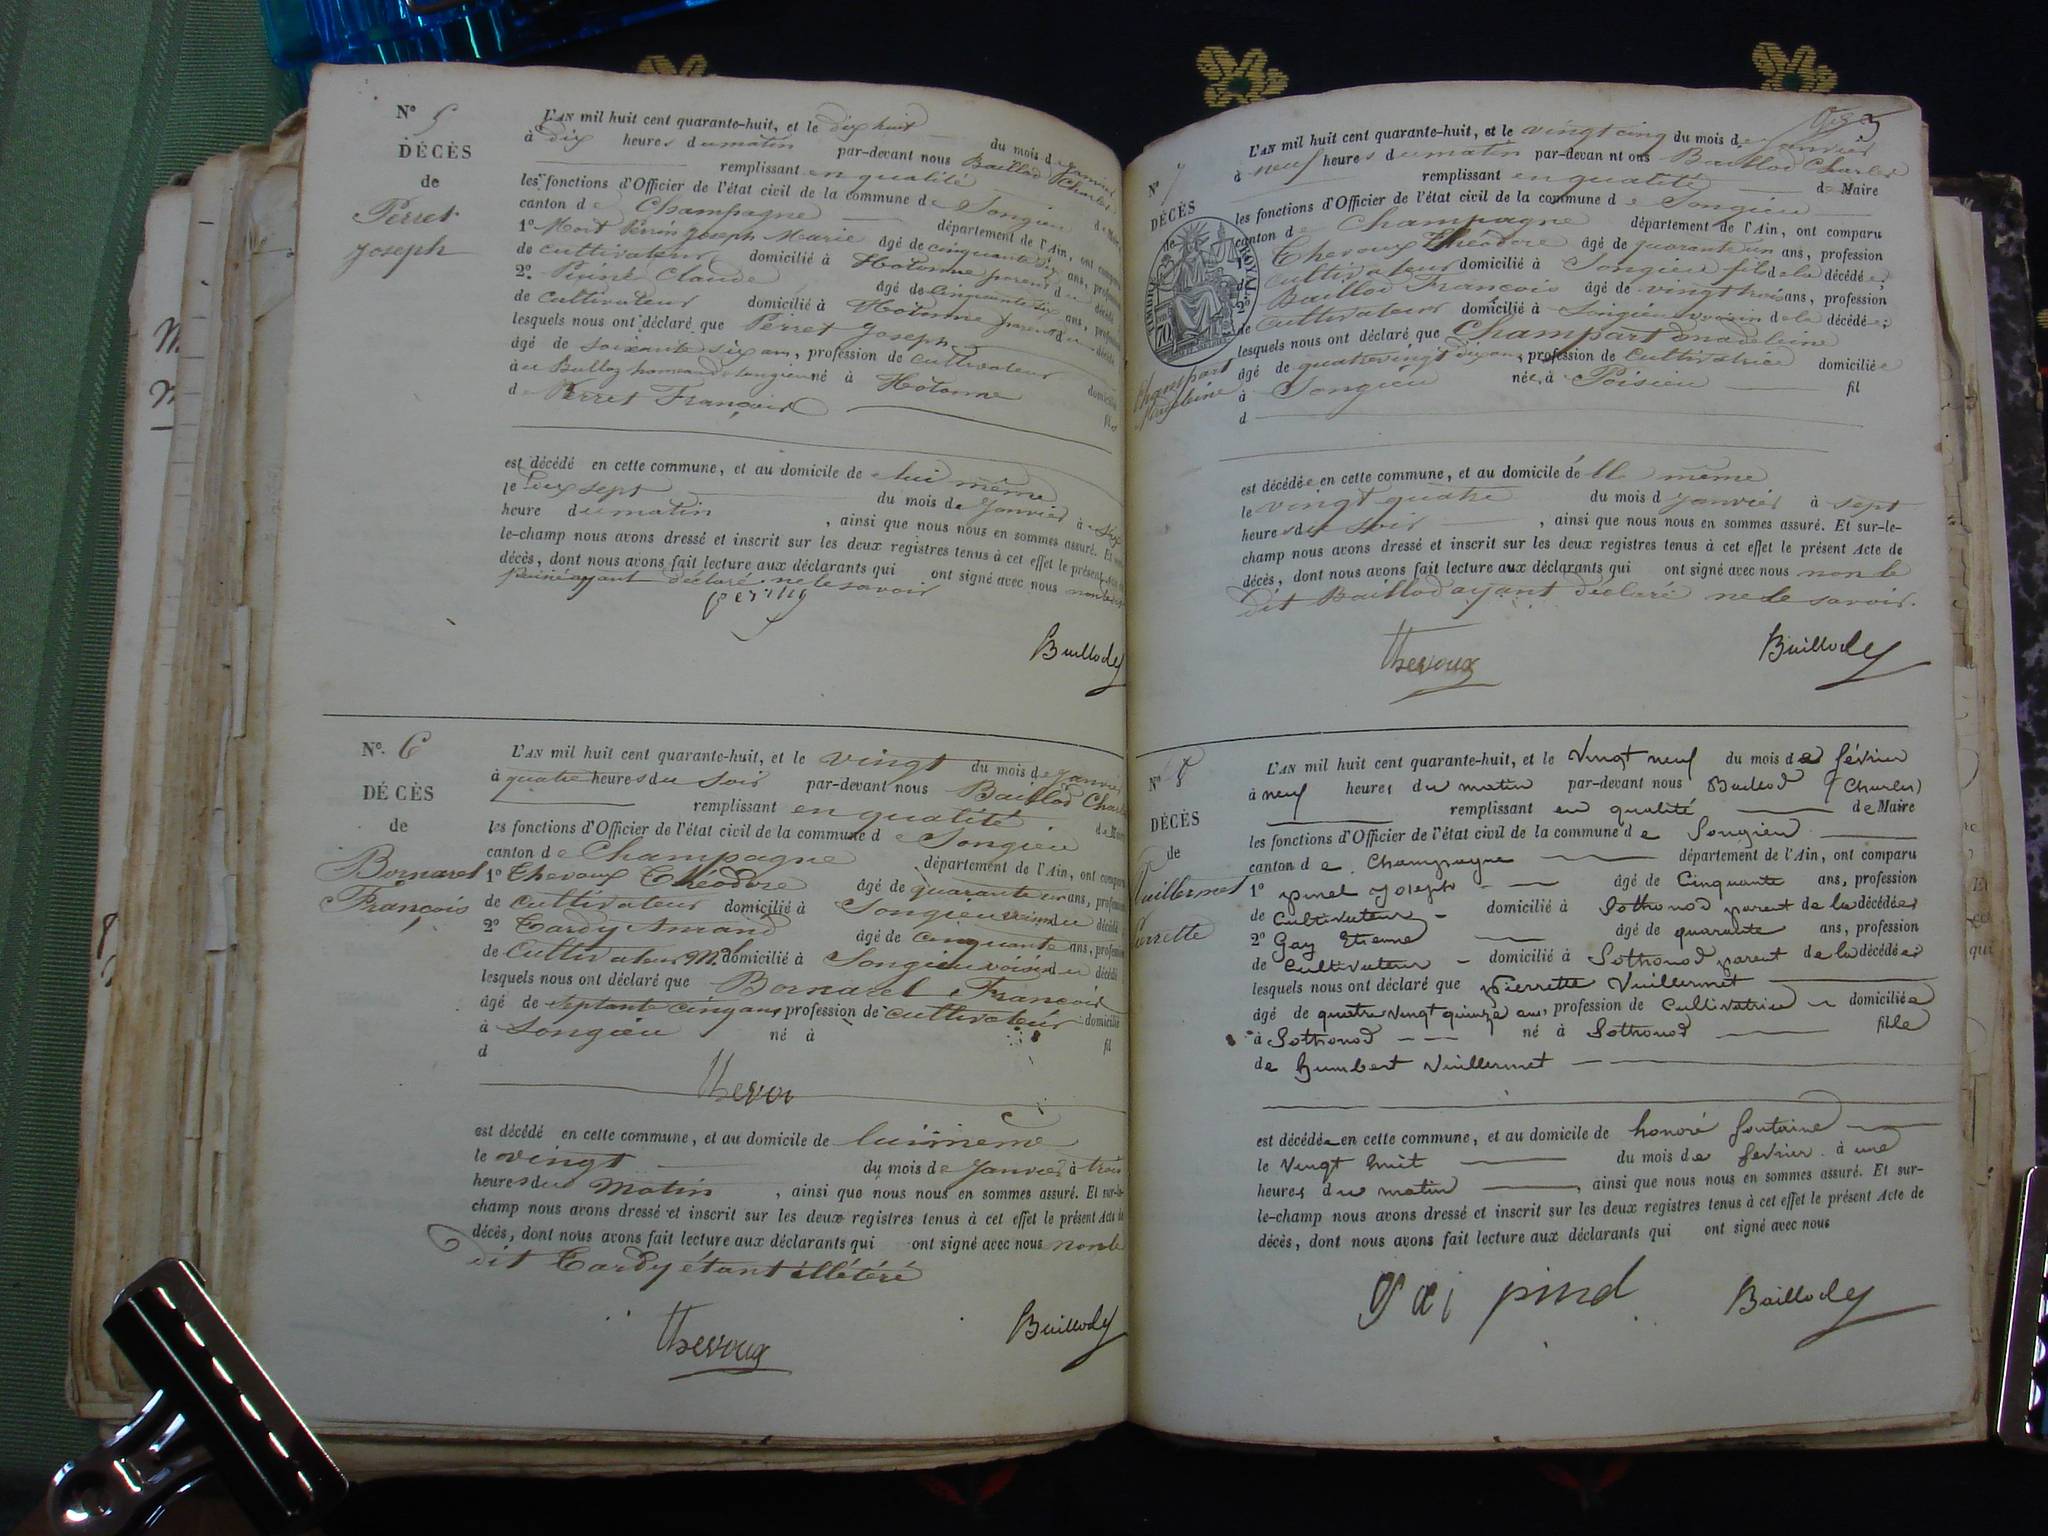 Nº 5
DÉCÈS
de
Perret
Joseph
L'AN mil huit cent quarante-huit, et le dix huit du mois de Janvier
à dix heures du matin par-devant nous Baillod Charles
remplissant en qualité de Maire
les fonctions d'Officier de l'état civil de la commune de Songieu
canton de Champagne département de l'Ain, ont comparu
1º Mort Perrin Joseph Marie âgé de cinquante ans, profession
de cultivateur domicilié à Hotonne parent du décédé
2º Claude âgé de cinquante six ans, profession
de cultivateur domicilié à Hotonne parent du décédé
lesquels nous ont déclaré que Perret Joseph
âgé de soixante six ans, profession de cultivateur domicilié
au hameau de Songieu né à Hotonne fils
de Perret François
est décédé en cette commune, et au domicile de lui même
le dix sept du mois de Janvier à
heure du matin , ainsi que nous nous en sommes assuré. Et sur-
le-champ nous avons dressé et inscrit sur les deux registres tenus à cet effet le présent Acte de
décès, dont nous avons fait lecture aux déclarants qui ont signé avec nous non le dit
ayant déclaré ne le savoir
Baillod
Nº 6
DÉCÈS
de
Bornarel
François
L'AN mil huit cent quarante-huit, et le vingt du mois de Janvier
à quatre heures du soir par-devant nous Baillod Charles
remplissant en qualité de Maire
les fonctions d'Officier de l'état civil de la commune de Songieu
canton de Champagne département de l'Ain, ont comparu
1º Thevoux Théodore âgé de quarante un ans, profession
de cultivateur domicilié à Songieu voisin du décédé
2º Tardy Amand âgé de cinquante ans, profession
de Cultivateur M. domicilié à Songieu voisin du décédé
lesquels nous ont déclaré que Bornarel François
âgé de septante cinq ans, profession de cultivateur domicilié
à Songieu né à fil
d
Thevou
est décédé en cette commune, et au domicile de lui même
le vingt du mois de Janvier à trois
heures du Matin , ainsi que nous nous en sommes assuré. Et sur-le-
champ nous avons dressé et inscrit sur les deux registres tenus à cet effet le présent Acte de
décès, dont nous avons fait lecture aux déclarants qui ont signé avec nous non le
dit Tardy étant illétéré
Thevoux
Baillod
Nº 7
DÉCÈS
de
Champart
Madeleine
L'AN mil huit cent quarante-huit, et le vingt cinq du mois de Janvier
à neuf heures du matin par-devan nt ous Baillod Charles
remplissant en qualité de Maire
les fonctions d'Officier de l'état civil de la commune de Songieu
canton de Champagne département de l'Ain, ont comparu
Thevoux Théodore âgé de quarante un ans, profession
cultivateur domicilié à Songieu fils de la décédée;
Baillod François âgé de vingt trois ans, profession
de Cultivateur domicilié à Songieu voisin de la décédée;
lesquels nous ont déclaré que Champart Madeleine
âgé de quatre vingt dix ans, profession de Cultivatrice domiciliée
à Songieu née à Poisieu fil
d
est décédée en cette commune, et au domicile de elle même
le vingt quatre du mois d Janvier à sept
heures du soir , ainsi que nous nous en sommes assuré. Et sur-le-
champ nous avons dressé et inscrit sur les deux registres tenus à cet effet le présent Acte de
décès, dont nous avons fait lecture aux déclarants qui ont signé avec nous non le
dit Baillod ayant déclaré ne le savoir.
Thevoux
Baillod
Nº 8
DÉCÈS
de
Vuillermet
Pierrette
L'AN mil huit cent quarante-huit, et le Vingt neuf du mois de février
à neuf heures du matin par-devant nous Baillod (Charles)
remplissant en qualité de Maire
les fonctions d'Officier de l'état civil de la commune de Songieu
canton de Champagne département de l'Ain, ont comparu
1º pinel Joseph âgé de Cinquante ans, profession
de Cultivateur domicilié à Sothonod parent de la décédée
2º Gay Etienne âgé de quarante ans, profession
de Cultivateur domicilié à Sothonod parent de la décédée
lesquels nous ont déclaré que Pierrette Vuillermet
âgé de quatre vingt quinze ans, profession de Cultivatrice domiciliée
à Sothonod né à Sothonod fille
de Humbert Vuillermet
est décédée en cette commune, et au domicile de honoré fontaine
le Vingt huit du mois de février à une
heures du matin , ainsi que nous nous en sommes assuré. Et sur-
le-champ nous avons dressé et inscrit sur les deux registres tenus à cet effet le présent Acte de
décès, dont nous avons fait lecture aux déclarants qui ont signé avec nous
Baillod